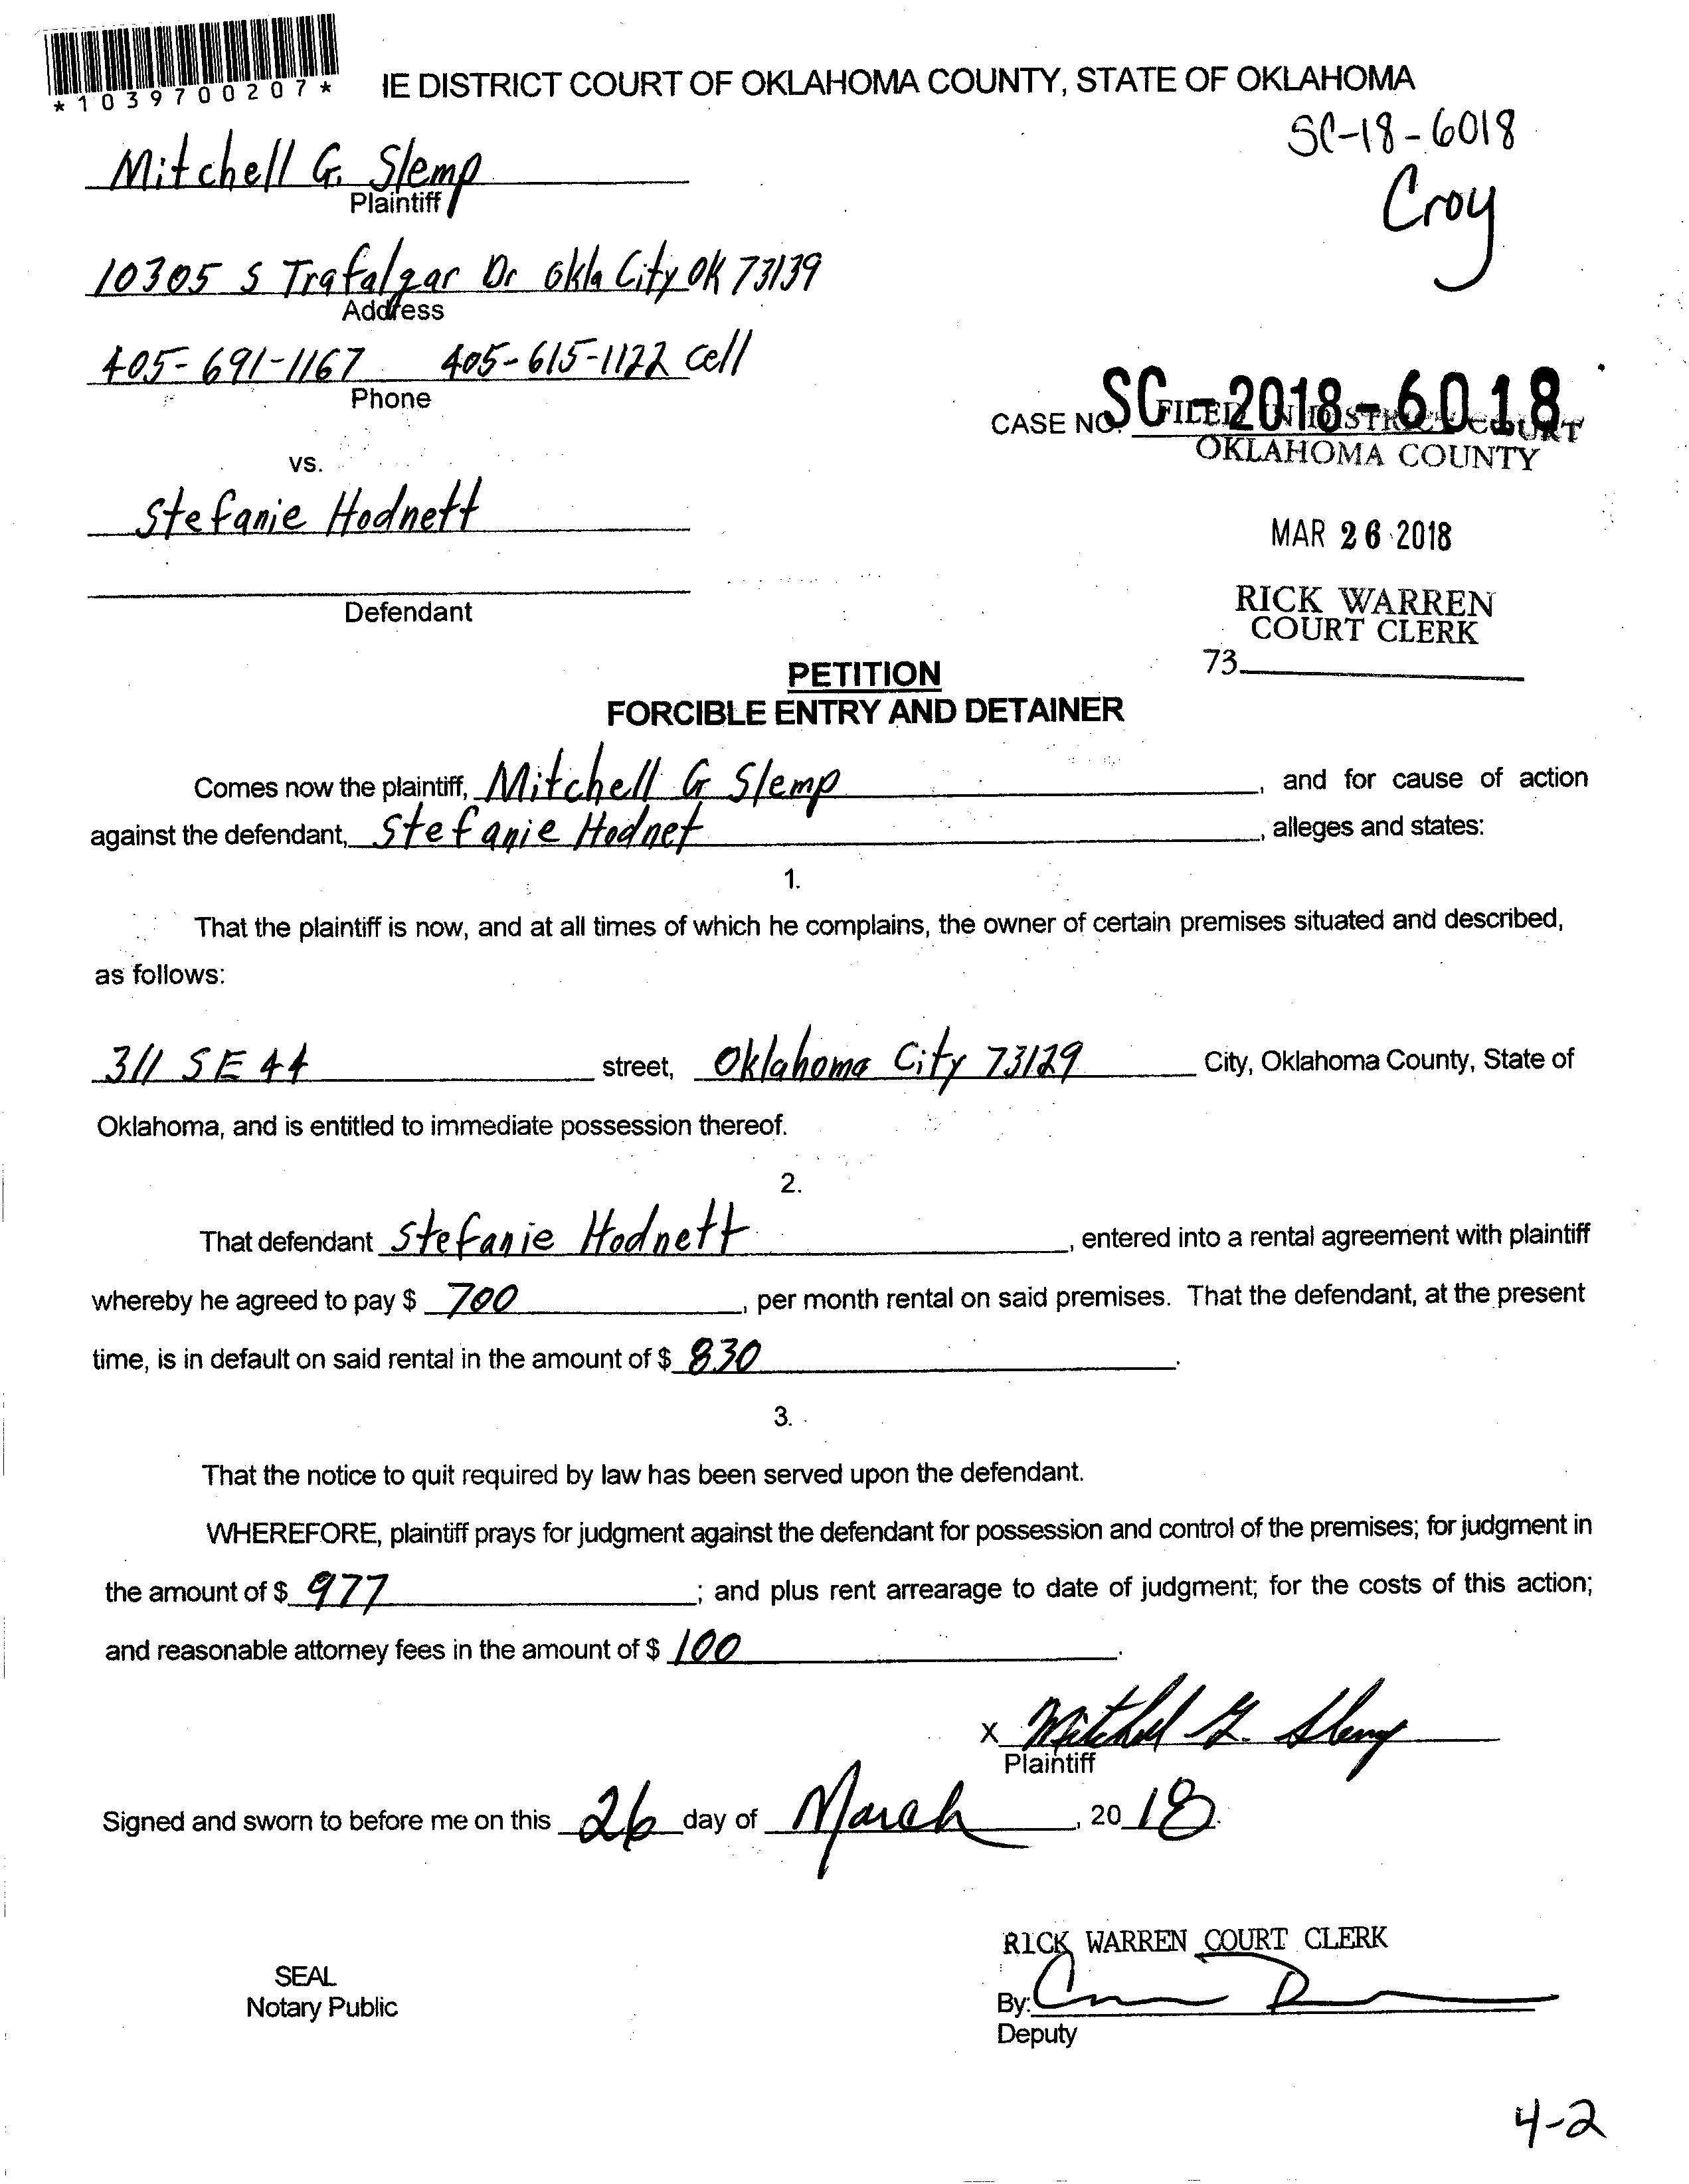 *1039700207*
IE DISTRICT COURT OF OKLAHOMA COUNTY, STATE OF OKLAHOMA
SC-18-6018
Croy
Mitchell G. Slemp
Plaintiff
10305 S Trafalgar Dr Okla City OK 73139
Address
405-691-1167 405-615-1122 cell
Phone
CASE NO. SC-2018-6018
FILED IN DISTRICT COURT
OKLAHOMA COUNTY
vs.
Stefanie Hodnett
MAR 26 2018
Defendant
RICK WARREN
COURT CLERK
73
PETITION
FORCIBLE ENTRY AND DETAINER
Comes now the plaintiff, Mitchell G Slemp, and for cause of action
against the defendant, Stefanie Hodnet, alleges and states:
1.
That the plaintiff is now, and at all times of which he complains, the owner of certain premises situated and described,
as follows:
311 SE 44 street, Oklahoma City 73129 City, Oklahoma County, State of
Oklahoma, and is entitled to immediate possession thereof.
2.
That defendant Stefanie Hodnett, entered into a rental agreement with plaintiff
whereby he agreed to pay $ 700, per month rental on said premises. That the defendant, at the present
time, is in default on said rental in the amount of $ 830.
3.
That the notice to quit required by law has been served upon the defendant.
WHEREFORE, plaintiff prays for judgment against the defendant for possession and control of the premises; for judgment in
the amount of $ 977; and plus rent arrearage to date of judgment; for the costs of this action;
and reasonable attorney fees in the amount of $ 100.
X Mitchell G. Slemp
Plaintiff
Signed and sworn to before me on this 26 day of March, 20 18.
RICK WARREN COURT CLERK
SEAL
Notary Public
By:
Deputy
4-2